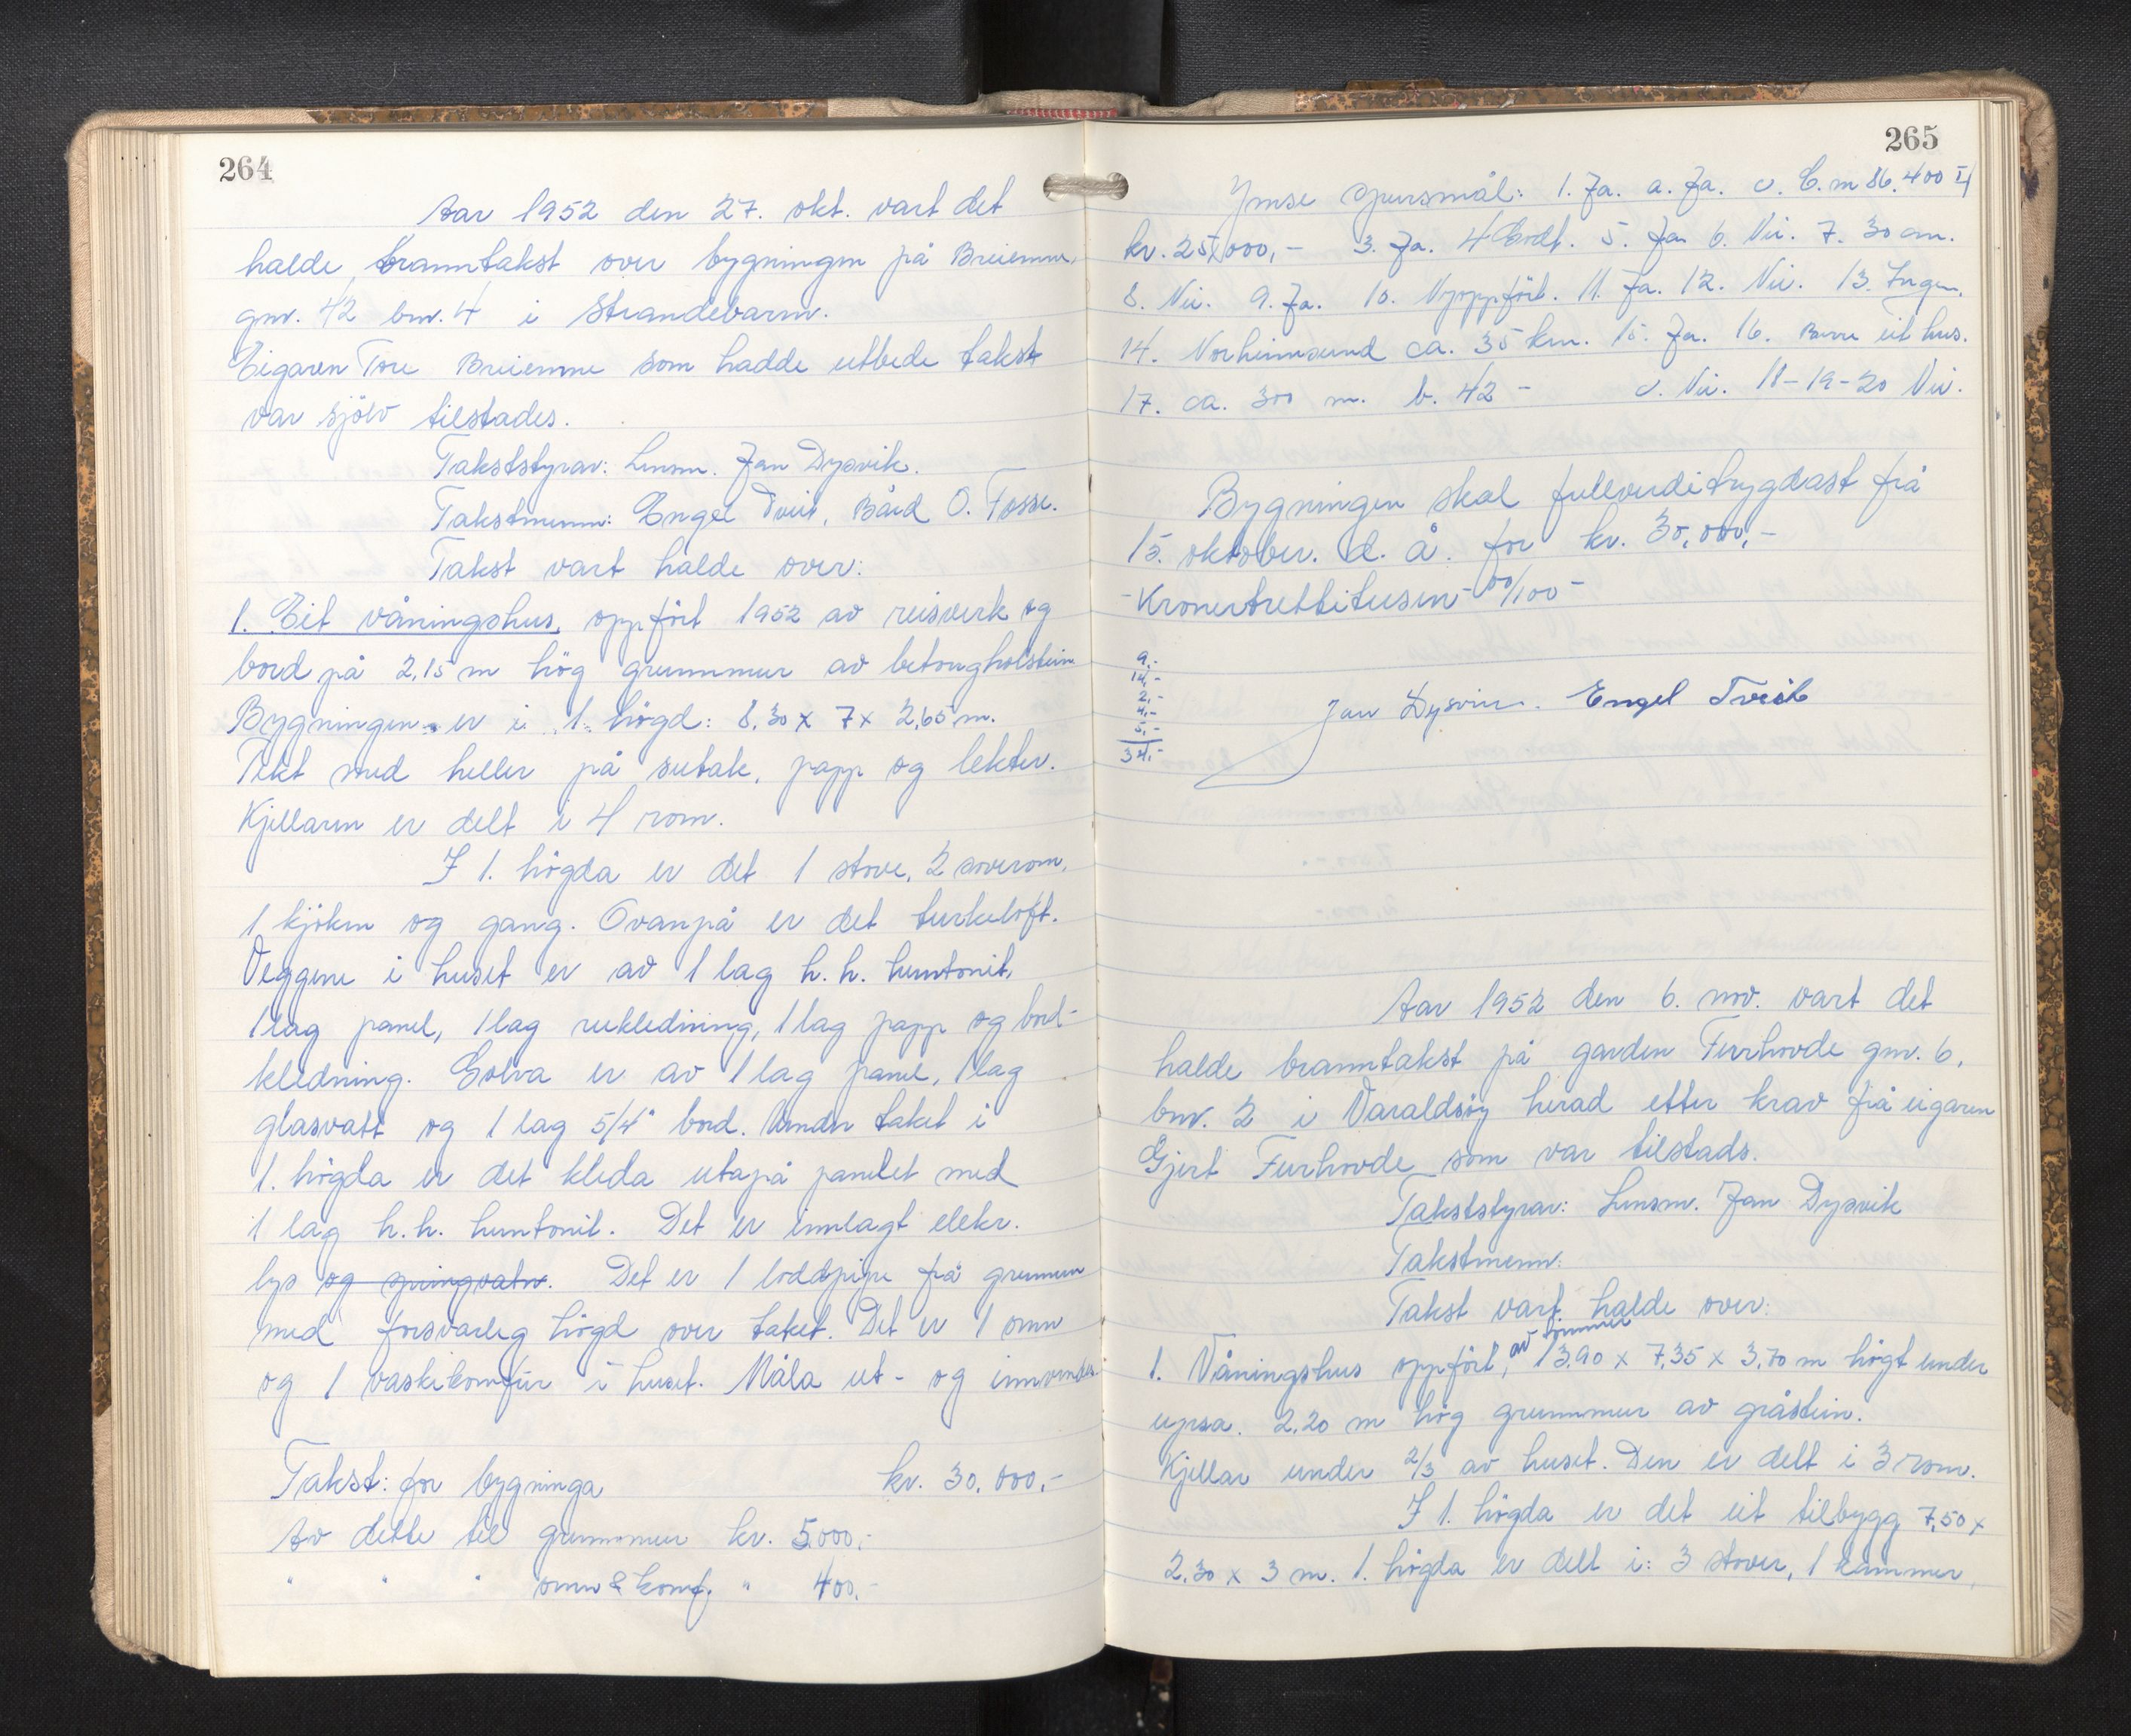 264
Aar 1952 den 27. okt. vart det
halde branntakst over bygningen på Breiemne,
gnr. 42 bnr. 4 i Strandebarm.
Eigaren Tore Breiemne som hadde utbede takst
var sjölv tilstades.
Takststyrar: Lensm. Jan Dysvik.
Takstmenn: Engel Tveit, Bård O. Fosse.
Takst vart halde over:
1. Eit våningshus, oppfört 1952 av reisverk og
bord på 2,15 m hög grunnmur av betongholstein
Bygningen er i 1. högd: 8,30 x 7 x 2,65 m.
Tekt med heller på sutak, papp og lekter.
Kjellaren er delt i 4 rom.
I 1. högda er det 1 stove, 2 soverom,
1 kjöken og gang. Ovanpå er det turkeloft.
Veggene i huset er av 1 lag h.h. huntonit,
1 lag panel, 1 lag rukledning, 1 lag papp og bord-
kledning. Golva er av 1 lag panel, 1 lag
glasvatt og 1 lag 5/4" bord. Under taket i
1. högda er det kleda utapå panelet med
1 lag h.h. huntonit. Det er innlagt elekr.
lys og springvatn. Det er 1 loddpipe frå grunnen
med forsvarleg högd over taket. Det er 1 omn
og 1 vaskikomfür i huset. Måla ut- og innvendes.
Takst: for bygninga kr. 30.000,-
Av dette til grunnmur kr. 5.000,-
" " " omn & komf. " 400,-
265
Ymse spursmål: 1. Ja. a. Ja. c. E.m 86.400 II
kr. 25,000,- 3. Ja. 4 Godt. 5. Ja 6. Nei. 7. 30 cm.
8. Nei. 9. Ja. 10. Nyoppfört. 11. Ja. 12. Nei. 13. Ingen.
14. Norheimsund ca. 35 km. 15. Ja. 16. Berre eit hus.
17. ca. 300 m. b. 42 - c. Nei. 18-19-20 Nei.
Bygningen skal fullverditrygdast frå
15. oktober. d. å. for kr. 30,000,-
-Kronertrettitusen- 00/100 -
9,-
14,-
2,-
4,-
5,-
34,-
Jan Dysvik. Engel Tveit
Aar 1952 den 6. nov. vart det
halde branntakst på garden Furhovde gnr. 6,
bnr. 2 i Varaldsöy herad etter krav frå eigaren
Gjert Furhovde som var tilstads.
Takststyrar: Lensm. Jan Dysvik
Takstmenn:
Takst vart halde over:
1. Våningshus oppfört, av tömmer 13,90 x 7,35 x 3,70 m högt under
upsa. 2,20 m hög grunnmur av gråstein.
Kjellar under 2/3 av huset. Den er delt i 3 rom.
I 1. högda er det eit tilbygg 7,50 x
2,30 x 3 m. 1. högda er delt i: 3 stover, 1 kammer,